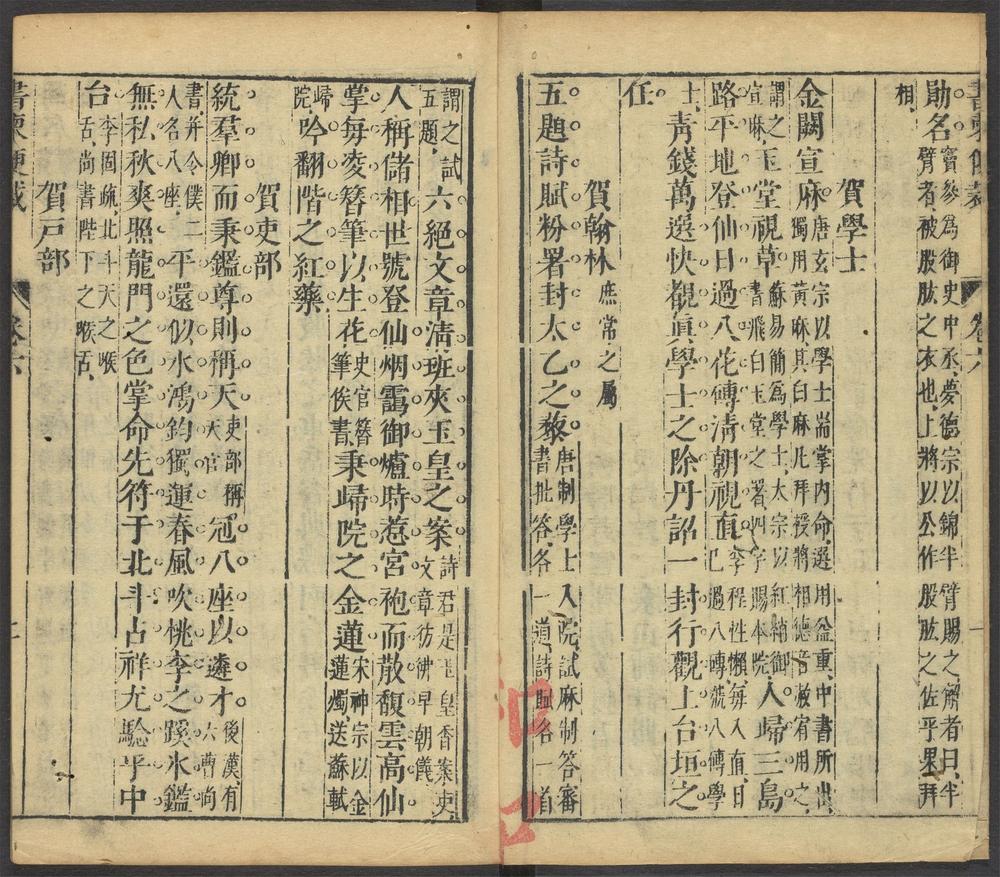 勛名竇參爲御史中丞夢德宗以錦半臂賜之解者曰半臂者被股肱之衣也上將以公作股肱之佐乎果拜
相
賀學士
金闕宣麻唐玄宗以學士耑掌内命選用益重中書所出獨用黃麻其白麻凡拜授將相德音赦宥用之
謂之宣麻玉堂視草蘇易簡爲學士太宗以紅綃御書飛白玉堂之署四字賜本院人歸三島
路平地登仙日過八花磚清朝視直李程性懶每入直日已過八磚號八磚學
士靑錢萬選快觀眞學士之除丹詔一封行觀上台垣之
任
賀翰林庶常之屬
五題詩賦粉署封太乙之藜唐制學士入院試麻制答審書批答各一道詩賦各一首
謂之試五題六絕文章淸班夾玉皇之案詩君是玉皇香案吏文章彷彿早朝儀
人稱儲相世號登仙烟靄御爐時惹宮袍而散馥雲高仙
掌每凌簪筆以生花史官簪筆俟書秉歸院之金蓮宋神宗以金蓮燭送蘇軾
歸院吟翻階之紅藥
賀吏部
統羣卿而秉鑑尊則稱天吏部稱天官冠八座以遴才後漢有六曹尚
書并令僕二人名八座平還似水鴻鈞獨運春風吹桃李之蹊氷鑑
無私秋爽照龍門之色掌命先符于北斗占祥尤驗乎中
台李固疏北斗天之喉舌尚書陛下之喉舌
賀戸部
卷六